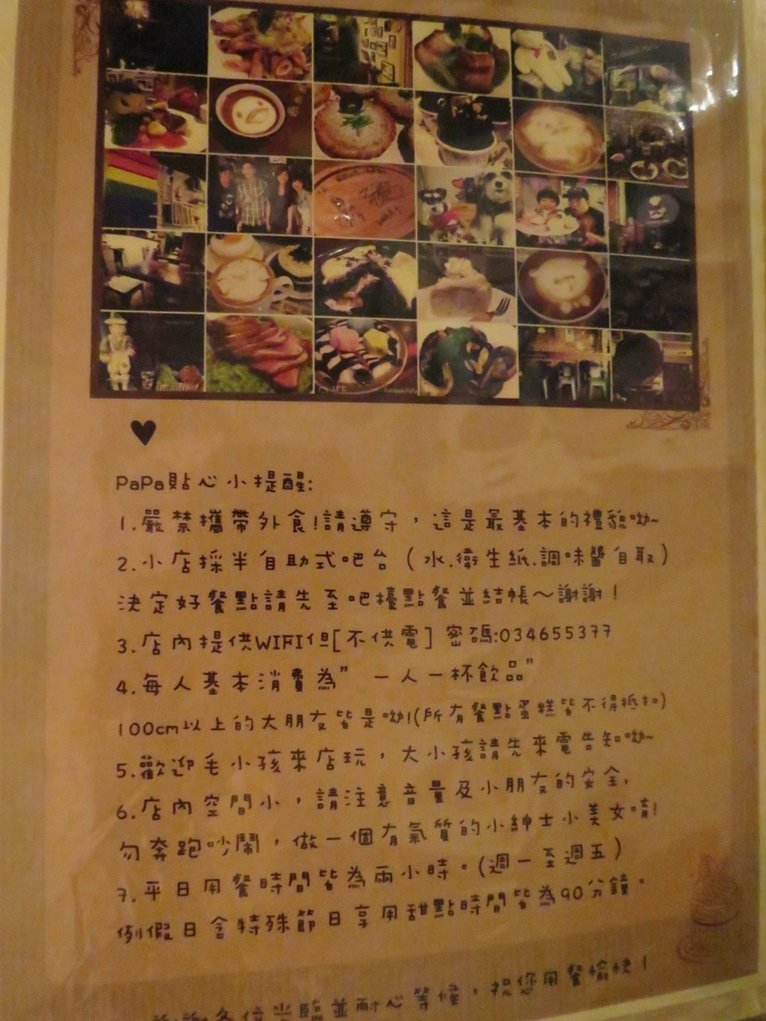 PaPa貼心小提醒:
1.嚴禁攜帶外食!請遵守,這是最基本的禮貌呦~
2.小店採半自助式吧台(水.衛生紙.調味醬自取)
決定好餐點請先至吧檯點餐並結帳~謝謝!
3.店內提供WIFI但[不供電] 密碼:034655377
4.每人基本消費為"一人一杯飲品"
100cm以上的大朋友皆是呦!(所有餐點蛋糕皆不得抵扣)
5.歡迎毛小孩來店玩,大小孩請先來電告知呦~
6.店內空間小,請注意音量及小朋友的安全,
勿奔跑吵鬧,做一個有氣質的小紳士小美女唷!
7.平日用餐時間皆為兩小時。(週一至週五)
例假日含特殊節日享用甜點時間皆為90分鐘。
謝謝各位光臨並耐心等候,祝您用餐愉快!